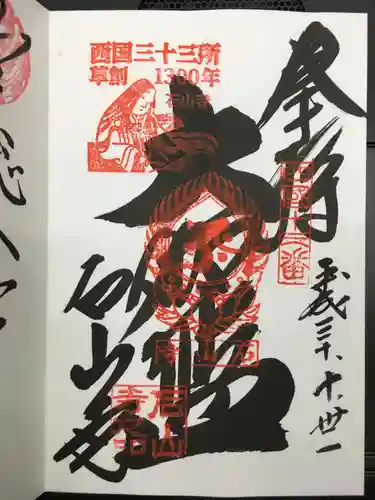 西国三十三所
草創 1300年
石山寺
奉拝
西国十三番
平成三十、十、卅一
大伽藍
石山寺
石山寺印